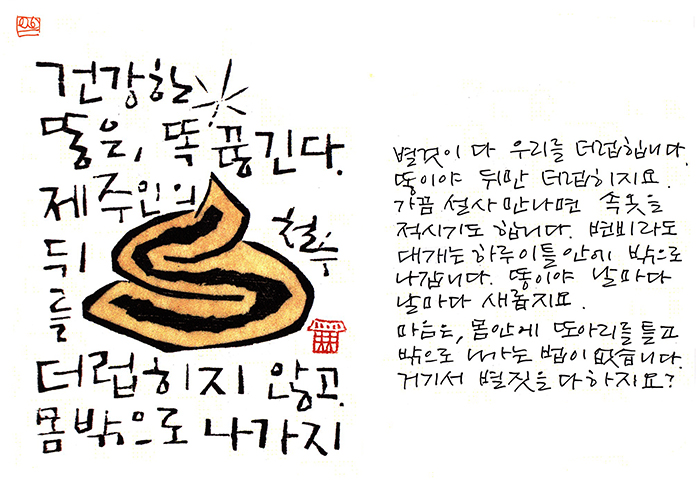 건강한
똥은, 똑 끊긴다.
제 주인의
뒤
를
더럽히지 않고.
몸 밖으로 나가지
철수
별것이 다 우리를 더럽힙니다.
똥이야 뒤만 더럽히지요.
가끔 설사 만나면 속옷을
적시기도 합니다. 변비라도
대개는 하루 이틀 안에 밖으로
나갑니다. 똥이야 날마다
날마다 새롭지요.
마음은, 몸 안에 또아리를 틀고
밖으로 나가는 법이 없습니다.
거기서 별짓을 다 하지요?